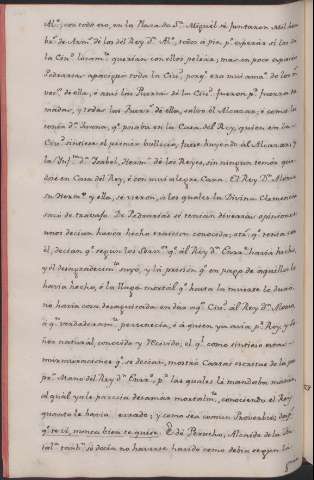 Al.º, con todo eso, en la Plaza de S.ⁿ Miguel se juntaron mil hom
br.ˢ de Arm.ˢ de los del Rey D.ⁿ Al.º, todos a pie, p.ª esperar si los de
la Ciu.ᵈ querian con ellos pelear, mas en poco espacio
Pedrarias apaciguó toda la Ciu.ᵈ porq.ᵉ era mui amado de los
de ella, é assi las Puertas de la Ciu.ᵈ fueron p.ʳ fuerza to
madas, y todas las Puertas de ella, salvo el Alcazar, é como la
Reyna D.ª Juana, q.ᵉ posaba en la Casa del Rey, quien en la
Ciu.ᵈ sintiese el primer bullicio, fuese huyendo al Alcazar, y
la Inf.ᵗᵃ D.ª Isabel, Herm.ª de los Reyes, sin ningun temor que
dose en Casa del Rey, é con mui alegre Cara. El Rey D.ⁿ Alonso
su Herm.º y ella, se vieron, a los quales la Divina Clemencia
sacó de trabajo. De Pedrarias se tenian diversas opiniones
unos decian haver hecho traicion conocida,
el, decian q.ᵉ segun los q.ᵉ al Rey D.ⁿ Enrr.ᵉ havia hecho,
y el desagradecim.ᵗᵒ suyo, y la prision q.ᵉ en pago de aquellos le
havia hecho, é la llaga mortal q.ᵉ hasta la muerte le duró
no havia cosa desaguisada en dar aq.ª Ciu.ᵈ al Rey D.ⁿ Alonso,
a q.ⁿ verdaderam.ᵗᵉ pertenecia, é a quien ya avia p.ʳ Rey, y Se
ñor natural, conocido y recivido, el q.ˡ como sintiese estas
murmuraciones q.ᵉ se decian, mostró Cartas escritas de la pro
pr.ª Mano del Rey D.ⁿ Enrr.ᵉ p.ʳ las quales le mandaba matar,
al qual ya le parecia desamar mortalm.ᵗᵉ, conociendo el Rey
quanto le havia errado; y como sea comun Proverbio:
q.ᵉ te vi, nunca bien te quise. E de Perucho, Alcaide de la
se decia no haverse havido como debia segun la